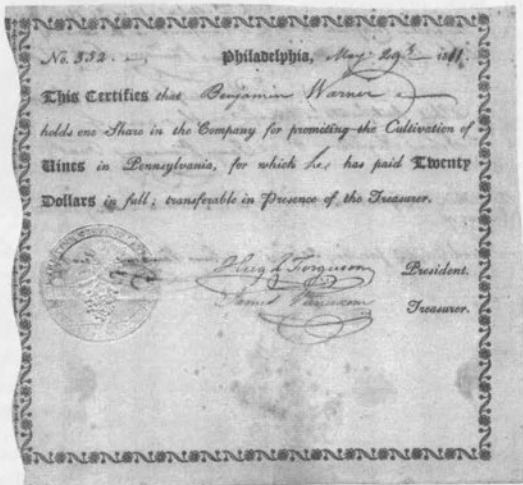 No. 332. Philadelphia, May 29th 1811.
This Certifies that Benjamin Warner
holds one Share in the Company for promoting the Cultivation of
Vines in Pennsylvania, for which he has paid Twenty
Dollars in full; transferable in Presence of the Treasurer.
Hugh Ferguson President.
James Vanuxem Treasurer.